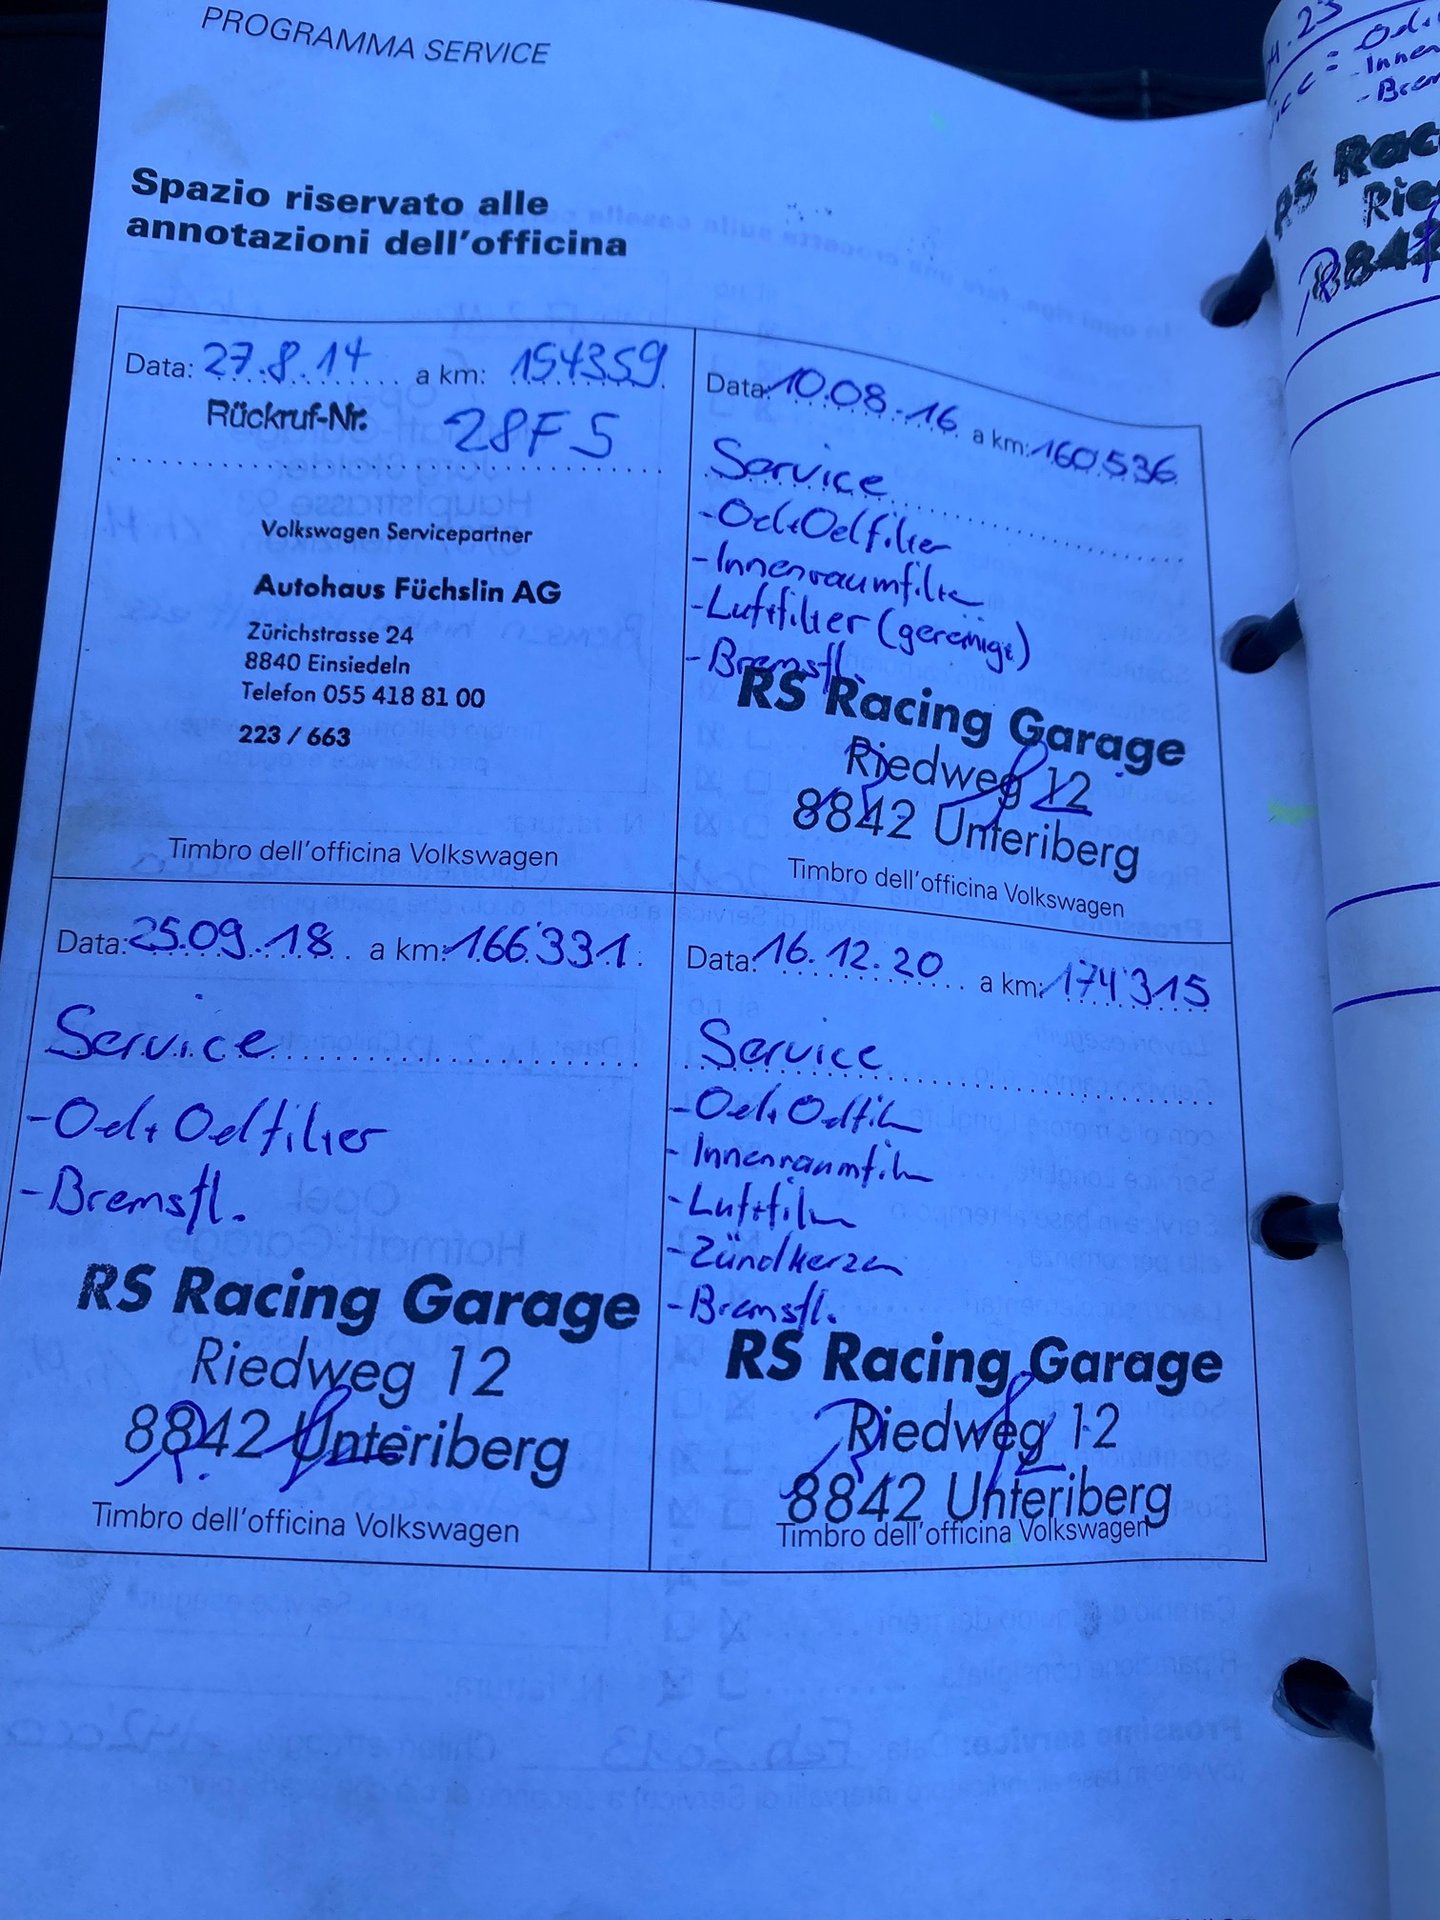 PROGRAMMA SERVICE
Spazio riservato alle
annotazioni dell'officina
Data: 27.8.14 a km: 154359
Rückruf-Nr. 28F5
Volkswagen Servicepartner
Autohaus Füchslin AG
Zürichstrasse 24
8840 Einsiedeln
Telefon 055 418 81 00
223 / 663
Timbro dell'officina Volkswagen
Data: 10.08.16 a km: 160'536
Service
- Oel+Oelfilter
- Innenraumfilter
- Luftfilter (gereinigt)
- Bremsfl.
RS Racing Garage
Riedweg 12
8842 Unteriberg
Timbro dell'officina Volkswagen
Data: 25.09.18 a km: 166'331
Service
- Oel+Oelfilter
- Bremsfl.
RS Racing Garage
Riedweg 12
8842 Unteriberg
Timbro dell'officina Volkswagen
Data: 16.12.20 a km: 174'315
Service
- Oel+Oelfilter
- Innenraumfilter
- Luftfilter
- Zündkerzen
- Bremsfl.
RS Racing Garage
Riedweg 12
8842 Unteriberg
Timbro dell'officina Volkswagen